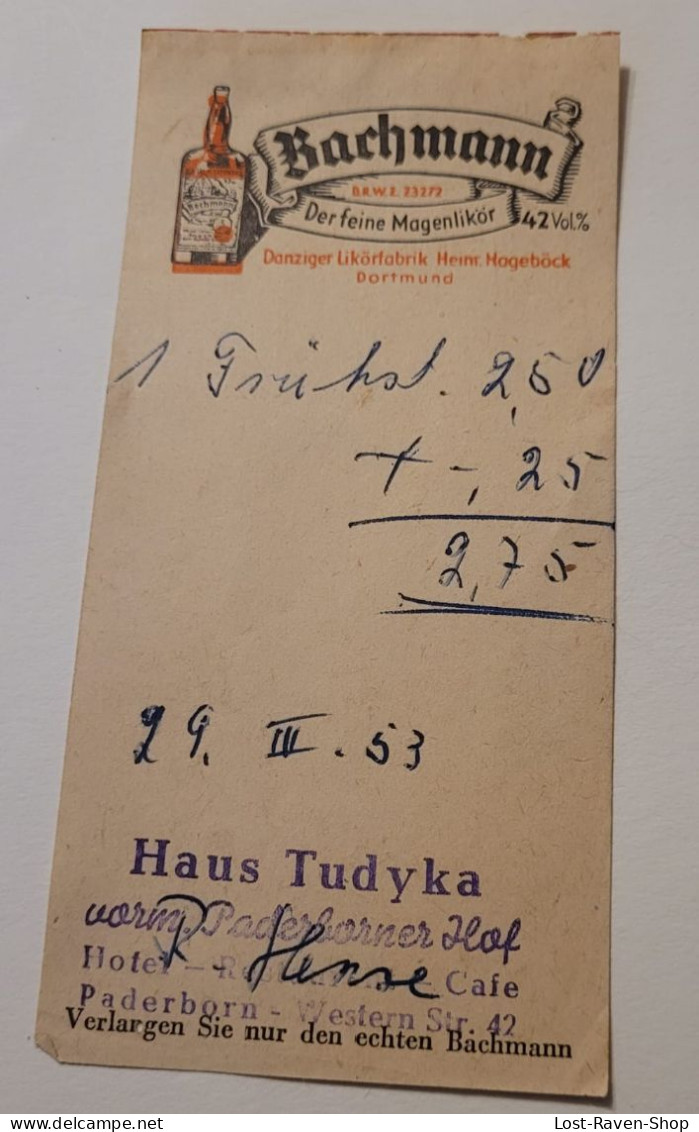 Bachmann
Bachmann
D.R.W.Z. 23272
Der feine Magenlikör 42 Vol.%
Danziger Likörfabrik Heinr. Hageböck
Dortmund
1 Frühst. 2,50
+ -,25
2,75
29. III. 53
Haus Tudyka
vorm. Paderborner Hof
Hotel - Restaurant - Cafe
Paderborn - Western Str. 42
Verlangen Sie nur den echten Bachmann
www.delcampe.net
Lost-Raven-Shop